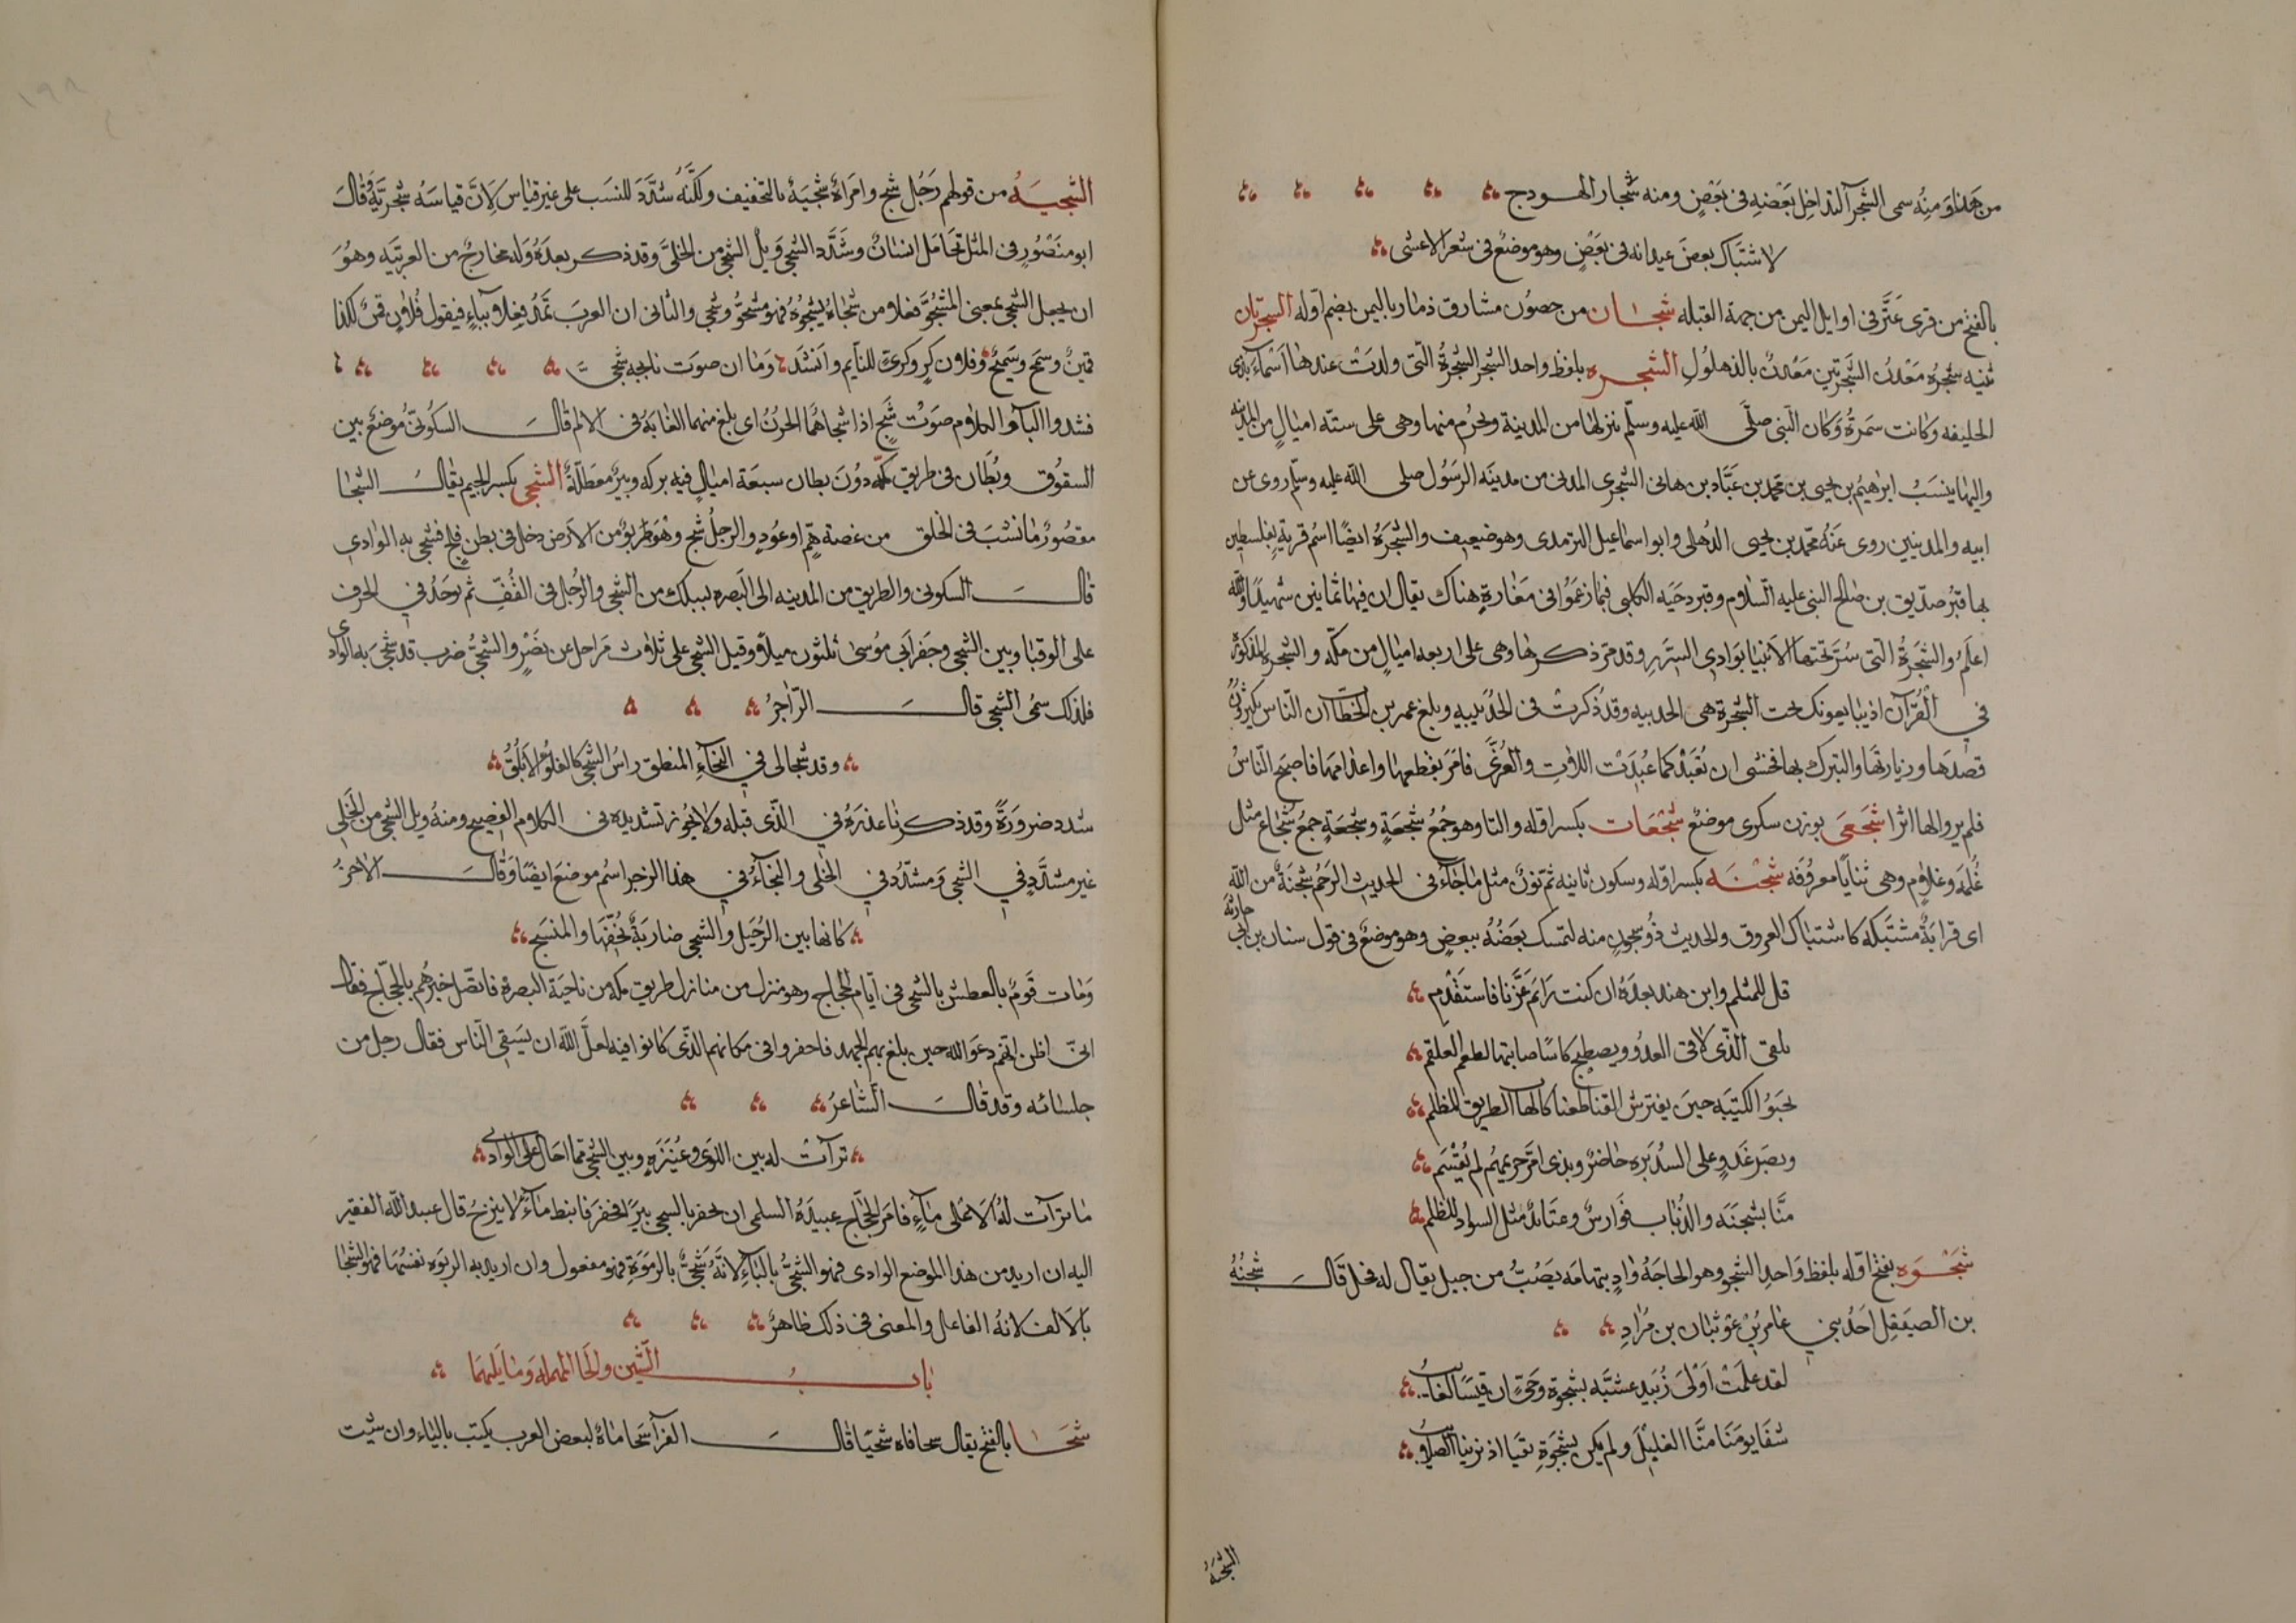 من هذا ومنه سمى الشجر التداخل بعضه فى بعض ومنه شجار الهودج
لاشتباك بعض عيدانه فى بعض وهو موضع فى شعر الاعشى
بالفتح من قرى عثر فى اوايل اليمن من جهة القبله شجان من حصون مشارق ذمار باليمن بضم اوله الشجرتان
ثنيه شجره معدن الشجرتين معدن بالذهلول الشجره بلفظ واحد الشجر الشجرة التى ولدت عندها اسماء بذى
الحليفه وكانت سمرة وكان النبى صلى الله عليه وسلم ينزلها من المدينة ويحرم منها وهى على ستة اميال من المدينه
واليها ينسب ابراهيم بن يحيى بن محمد بن عباد بن هانى الشجرى المدنى من مدينة الرسول صلى الله عليه وسلم روى عن
ابيه والمدينين روى عنه محمد بن يحيى الذهلى وابو اسماعيل الترمذى وهو ضعيف والشجرة ايضا اسم قرية بفلسطين
بها قبر صديق بن صالح النبى عليه السلام وقبر دحيه الكلبى فيما زعموا فى مغارة هناك يقال ان فيها ثمانين شهيدا والله
اعلم والشجرة التى سر تحتها الانبيا بوادى السرر وقد مر ذكرها وهى على اربعه اميال من مكه والشجره المذكوره
في القرآن اذ يبايعونك تحت الشجرة هى الحديبيه وقد ذكرت فى الحديبيه وبلغ عمر بن الخطاب ان الناس يكثرون
قصدها وزيارتها والتبرك بها فخشى ان تعبد كما عبدت اللات والعزى فامر بقطعها واعدامها فاصبح الناس
فلم يروا لها اثرا شجعى بوزن سكرى موضع شجعات بكسر اوله والتا وهو جمع شجعة وشجعة جمع شجاع مثل
غلمة وغلام وهى ثنايا معروفه شجنه بكسر اوله وسكون ثانيه ثم نون مثل ما جآء فى الحديث الرحم شجنة من الله
اى قرابة مشتبكه كاشتباك العروق والحديث ذو شجون منه لتمسك بعضه ببعض وهو موضع فى قول سنان بن ابى حارثة
قل للمثلم وابن هند بعده ان كنت رائم عزنا فاستقدم
تلقى الذى لاقى العدو ويصطبح كاسا صبابتها لطعم العلقم
نحبو الكتيبه حين يفترش القنا طعنا كالهاب الطريق المظلم
وبضرغد وعلى السديره حاضر وبذى امر حريمهم لم يقسم
منا بشجنه والذناب فوارس وعتائد مثل السواد المظلم
شجوه بفتح اوله بلفظ واحد الشجو وهو الحاجة واد بتهامه يصب من جبل يقال له فحل قال شجنه
بن الصيقل احد بني عامر بن عوثبان بن مراد
لقد علمت اولى زبيد عشيه بشجوة وحى ان قيسا لغايب
شفا يومنا منا الغليل ولم يكن بشجوة بقيا اذ نزينا الصلايب
الشجيه
الشجيه من قولهم رجل شج وامراة شجية بالتخفيف ولكنه شدد للنسب على غير قياس لان قياسه شجرية قال
ابو منصور فى المثل تحامل انسان وشدد الشجى ويل الشجى من الخلى وقد ذكر بعده وله مخارج من العربيه وهو
ان يجعل الشجى بمعنى المشجو فعلا من شجاه يشجوه فهو مشجو وشجى والثانى ان العرب تمد فعلا بياء فيقول فلان قمن لكذا
قمين وسمج وسميج وفلان كر وكرى للنايم وانشد وما ان صوت نايحه شجى
فشدد اليآء والكلام صوت شج اذا شجاهما الحزن اى بلغ منهما الغاية فى الالم قال السكونى موضع بين
السقوق وبطان فى طريق مكه دون بطان سبعة اميال فيه بركه وبير معطلة الشجى بكسر الجيم يقال الشجا
مقصور ما نشب فى الحلق من غصة هم او عود والرجل شج وهو طريق من الارض دخل فى بطن فلج فشجى به الوادى
قال السكونى والطريق من المدينه الى البصره يسلك من الشجى والرحيل فى القف ثم يوخذ في الحرف
على الوقبا وبين الشجى وحفر ابى موسى ثلثون ميلا وقيل الشجى على ثلاث مراحل عن بصر والشجى ضرب قد شجى به الوادى
فلذلك سمى الشجى قال الراجز
وقد شجالى في النجآء المنطق راس الشجى كالفلو الابلق
شدد ضرورة وقد ذكرنا عذره في الذى قبله ولا يجوز تشديده فى الكلام الفصيح ومنه ويل الشجى من الخلى
غير مشدد في الشجى ومشدد في الخلى والنجآء في هذا الرجز اسم موضع ايضا وقال الاخر
كانها بين الرحيل والشجى ضاربة بخفها والمنسج
ومات قوم بالعطش بالشجى فى ايام الحجاج وهو منزل من منازل طريق مكه من ناحية البصرة فاتصل خبرهم بالحجاج فقال
انى اظن انهم دعوا الله حين بلغ بهم الجهد فاحفروا فى مكانهم الذى كانوا فيه لعل الله ان يسقى الناس فقال رجل من
جلسائه وقد قال الشاعر
ترآت له بين اللوى وعنيزة وبين الشجى مما احال على الوادى
ما ترآت له الا على مآء فامر الحجاج عبيدة السلمى ان يحفر بالشجى بيرا فحفر فانبط مآء لا ينزح قال عبد الله الفقير
اليه ان اريد من هذا الموضع الوادى فهو الشجى باليآء لانه شجى بالربوة فهو مفعول وان اريد به الربوه نفسها فهو الشجا
بالالف لانه الفاعل والمعنى فى ذلك ظاهر
باب الشين والحا المهمله وما يليهما
شحا بالفتح يقال شحا فاه شحيا قال الفرآ شحا ماة لبعض العرب يكتب بالياء وان شيت